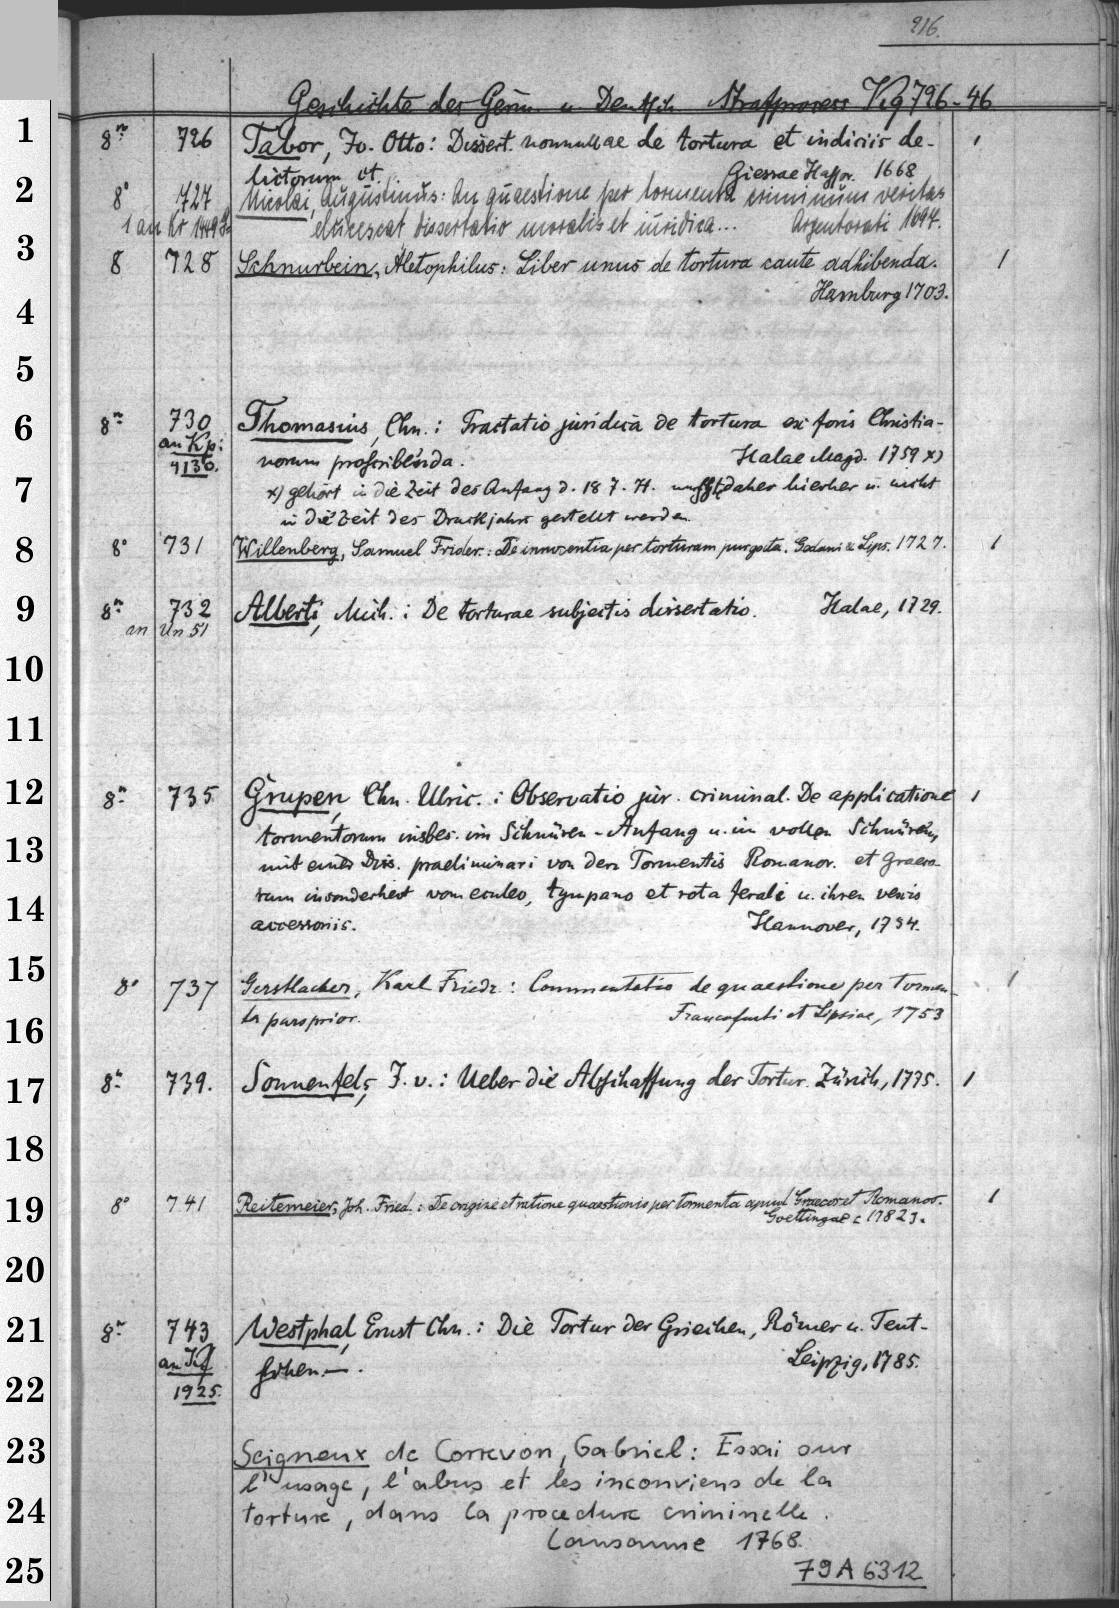 916.
Geschichte des Germ u. Deutsch Strafprocess Kq 726-46
1 8° 726 Tabor, Jo. Otto: Dissert. nonnullae de tortura et indiciis de- 1
lictorum et. Giessae Hassor. 1668
2 8° 727 Nicolai, Augustinus: An quaestione per tormenta criminum veritas
1 an Kr elucescat dissertatio moralis et iuridica... Argentorati 1697.
3 8 728 Schnurbein, Aletophilus: Liber unus de tortura caute adhibenda. 1
4 Hamburg 1703.
5
6 8° 730 Thomasius, Chn.: Tractatio juridica de tortura ex foris Christia-
an Kp: 4136. norum proscribenda. Halae Magd. 1759 x)
7 x) gehört in die Zeit des Anfang d. 18 J. H. daher hierher u. nicht
in die Zeit des Druckjahrs gestellt werden
8 8° 731 Willenberg, Samuel Frider.: De innocentia per torturam purgata. Gedani & Lips. 1727. 1
9 8° 732 Alberti, Mich.: De torturae subjectis dissertatio. Halae, 1729.
an Un 51
10
11
12 8° 735 Grupen, Chn. Ulric.: Observatio jur. criminal. De applicatione 1
tormentorum insbes. im Schnüren-Anfang u. im vollen Schnüren,
13 mit einer Dis. praeliminari von den Tormentis Romanor. et Graeco-
14 rum insonderheit vom eculeo, tympano et rota ferali u. ihren vexis
accessoriis. Hannover, 1754.
15 8° 737 Gerstlacher, Karl Friedr.: Commentatio de quaestione per tormen- 1
16 ta pars prior. Francofurti et Lipsiae, 1753
17 8° 739. Sonnenfels, J. v.: Ueber die Abschaffung der Tortur. Zürich, 1775. 1
18
19 8° 741 Reitemeier, Joh. Fried.: De origine et ratione quaestionis per tormenta apud Graecos et Romanos. 1
Goettingae 1782.
20
21 8° 743 Westphal, Ernst Chn.: Die Tortur der Griechen, Römer u. Teut-
an Kf schen.—. Leipzig, 1785.
22 1925.
23 Seigneux de Correvon, Gabriel: Essai sur
l'usage, l'abus et les inconviens de la
24 torture, dans la procedure criminelle.
Lausanne 1768.
25 79 A 6312